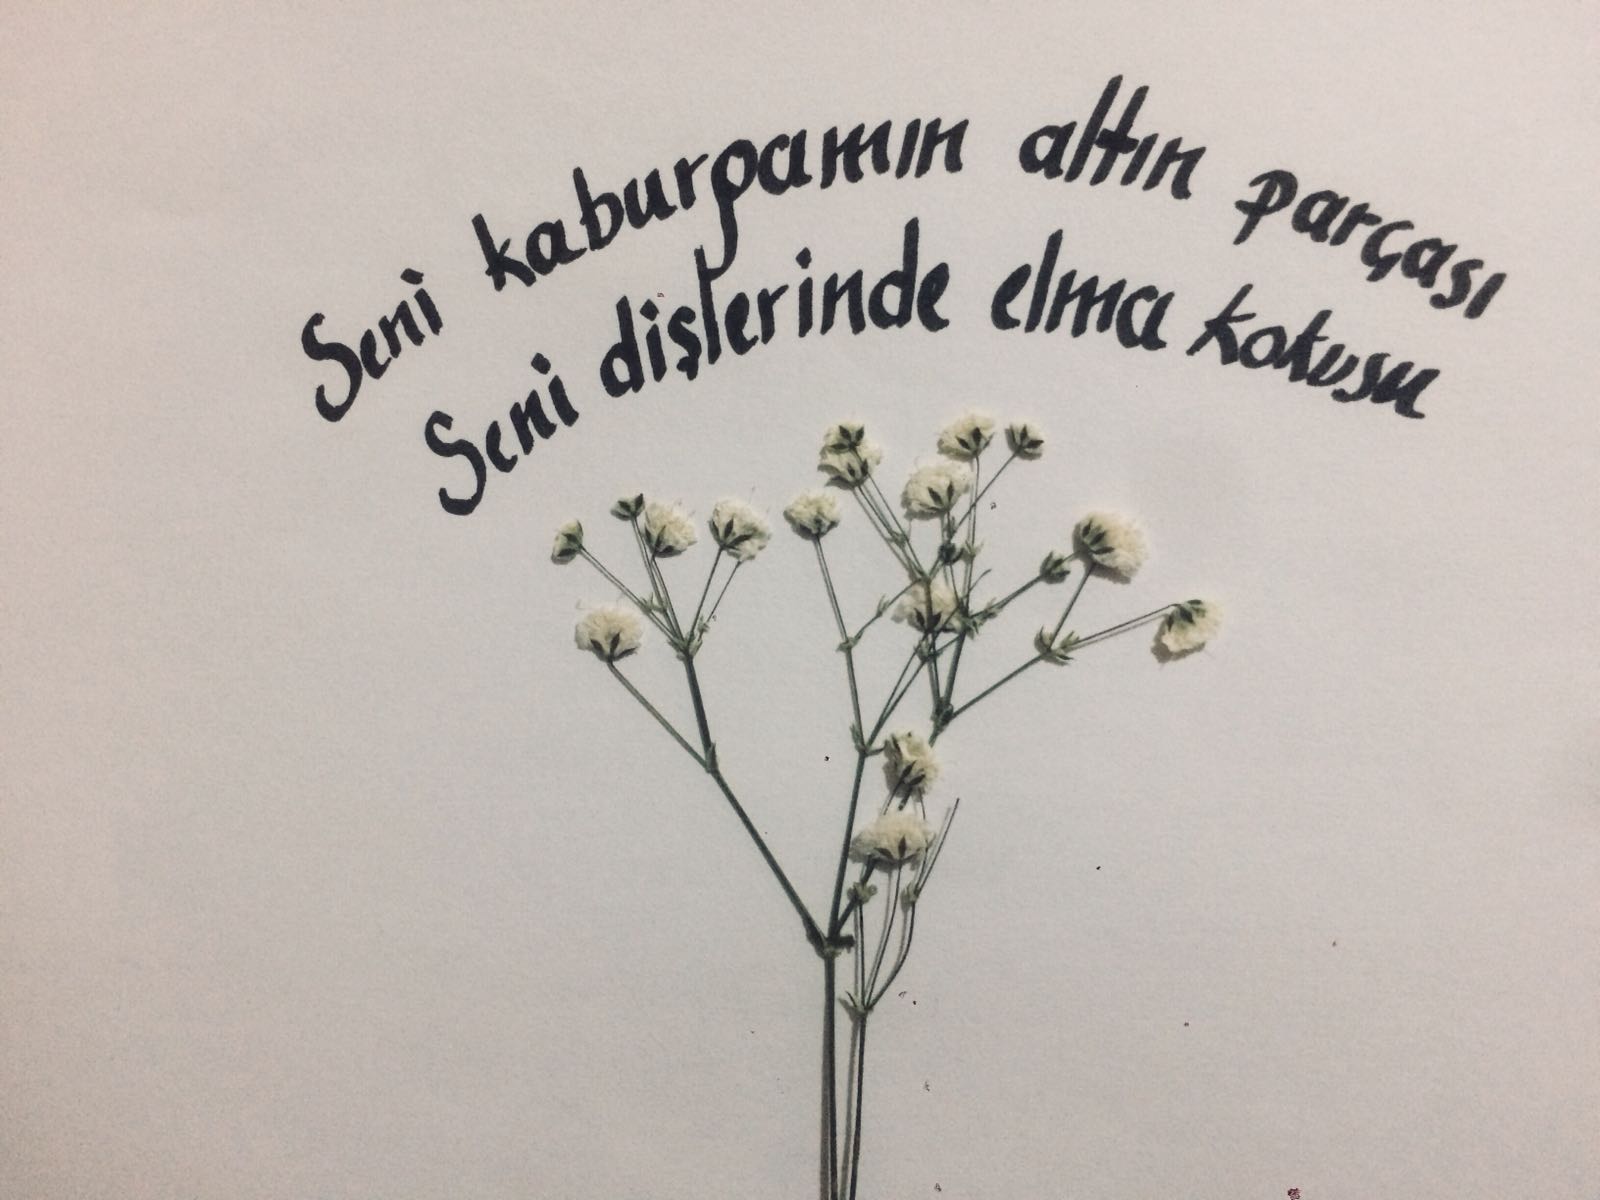 Seni kaburgamın altın parçası
Seni dişlerinde elma kokusu